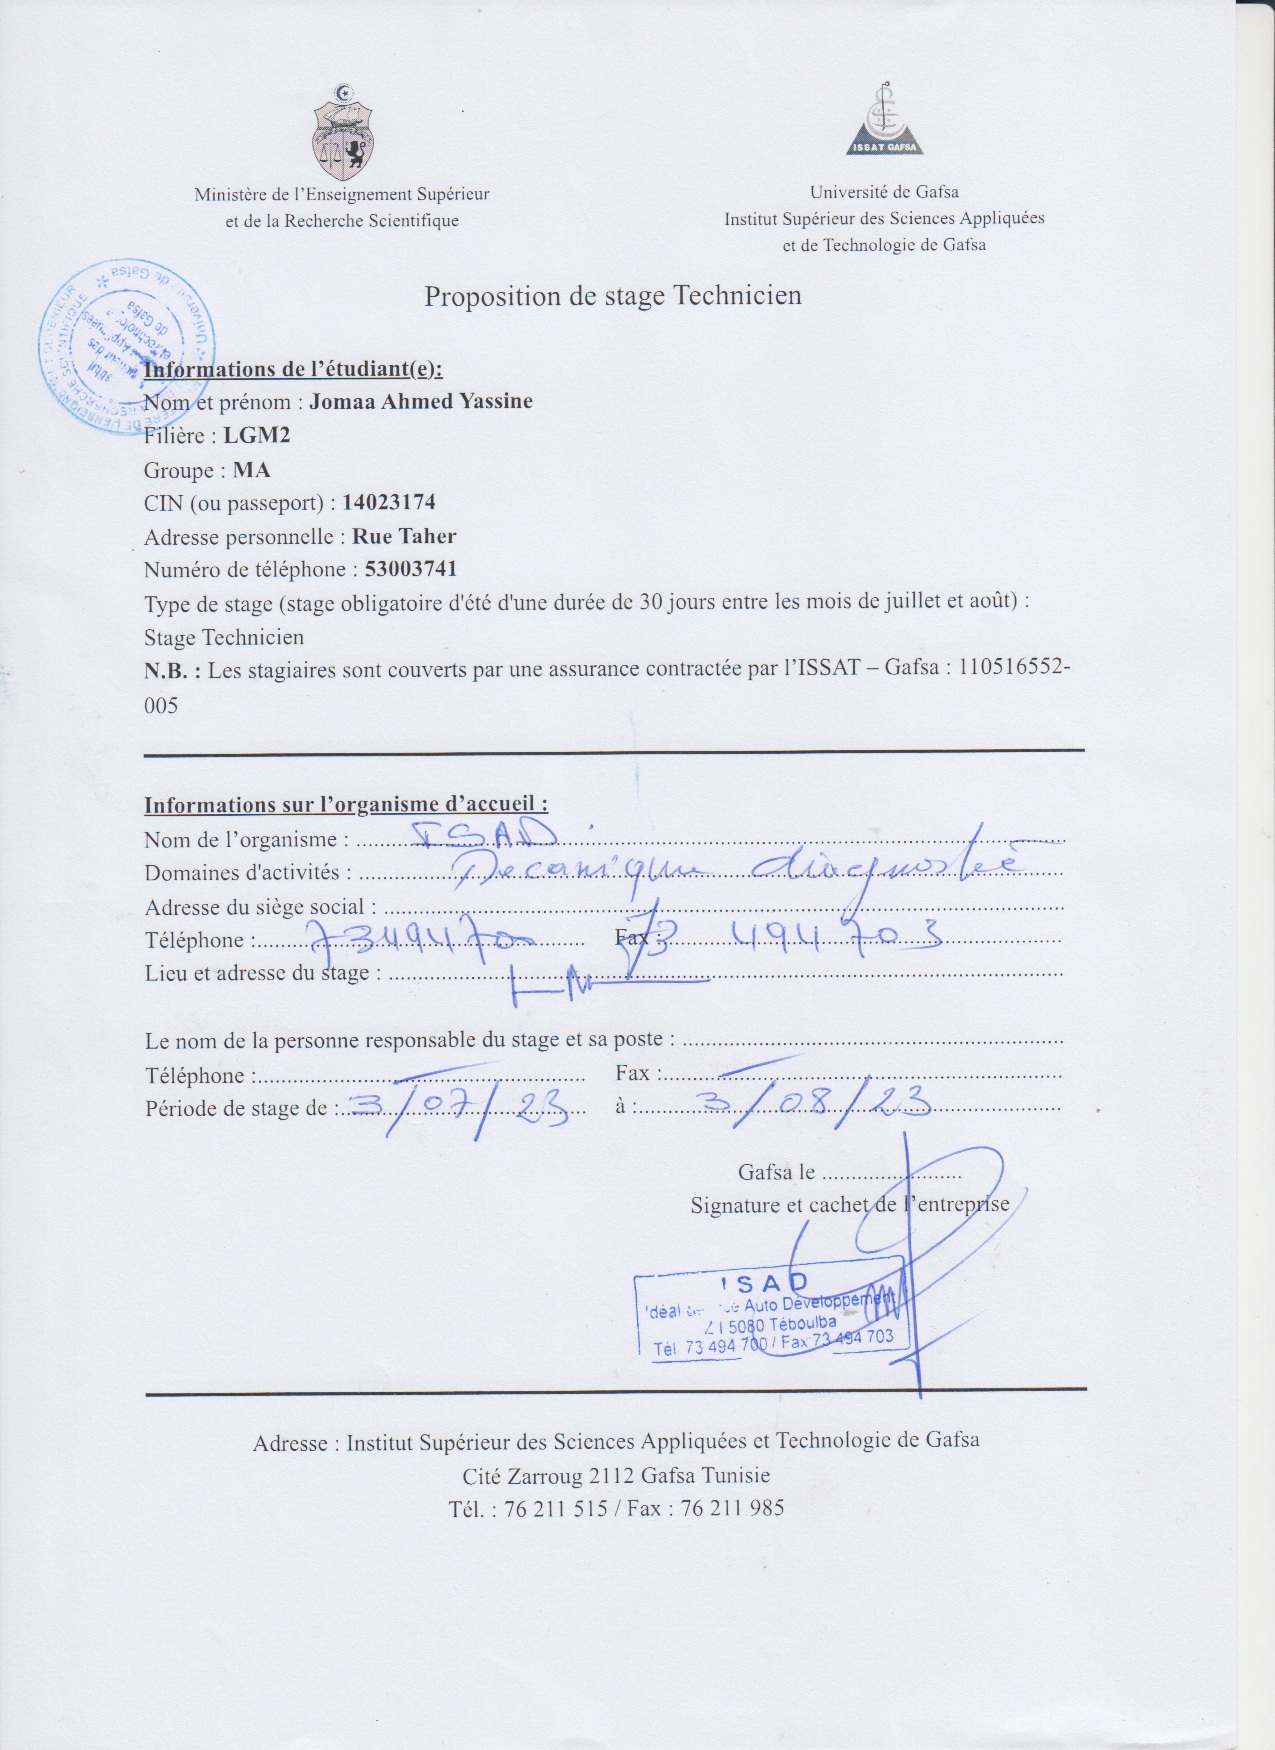 Ministère de l'Enseignement Supérieur
et de la Recherche Scientifique
ISSAT GAFSA
Université de Gafsa
Institut Supérieur des Sciences Appliquées
et de Technologie de Gafsa
Proposition de stage Technicien
Informations de l'étudiant(e):
Nom et prénom : Jomaa Ahmed Yassine
Filière : LGM2
Groupe : MA
CIN (ou passeport) : 14023174
Adresse personnelle : Rue Taher
Numéro de téléphone : 53003741
Type de stage (stage obligatoire d'été d'une durée de 30 jours entre les mois de juillet et août) :
Stage Technicien
N.B. : Les stagiaires sont couverts par une assurance contractée par l'ISSAT – Gafsa : 110516552-
005
Informations sur l'organisme d'accueil :
Nom de l'organisme : ISAD
Domaines d'activités : Mecanique diagnostic
Adresse du siège social :
Téléphone : 73494700 Fax : 73 494 703
Lieu et adresse du stage :
Le nom de la personne responsable du stage et sa poste :
Téléphone : Fax :
Période de stage de : 3/07/23 à : 3/08/23
Gafsa le
Signature et cachet de l'entreprise
ISAD
Auto Développement
Z I 5080 Téboulba
Tél 73 494 700 / Fax 73 494 703
Adresse : Institut Supérieur des Sciences Appliquées et Technologie de Gafsa
Cité Zarroug 2112 Gafsa Tunisie
Tél. : 76 211 515 / Fax : 76 211 985